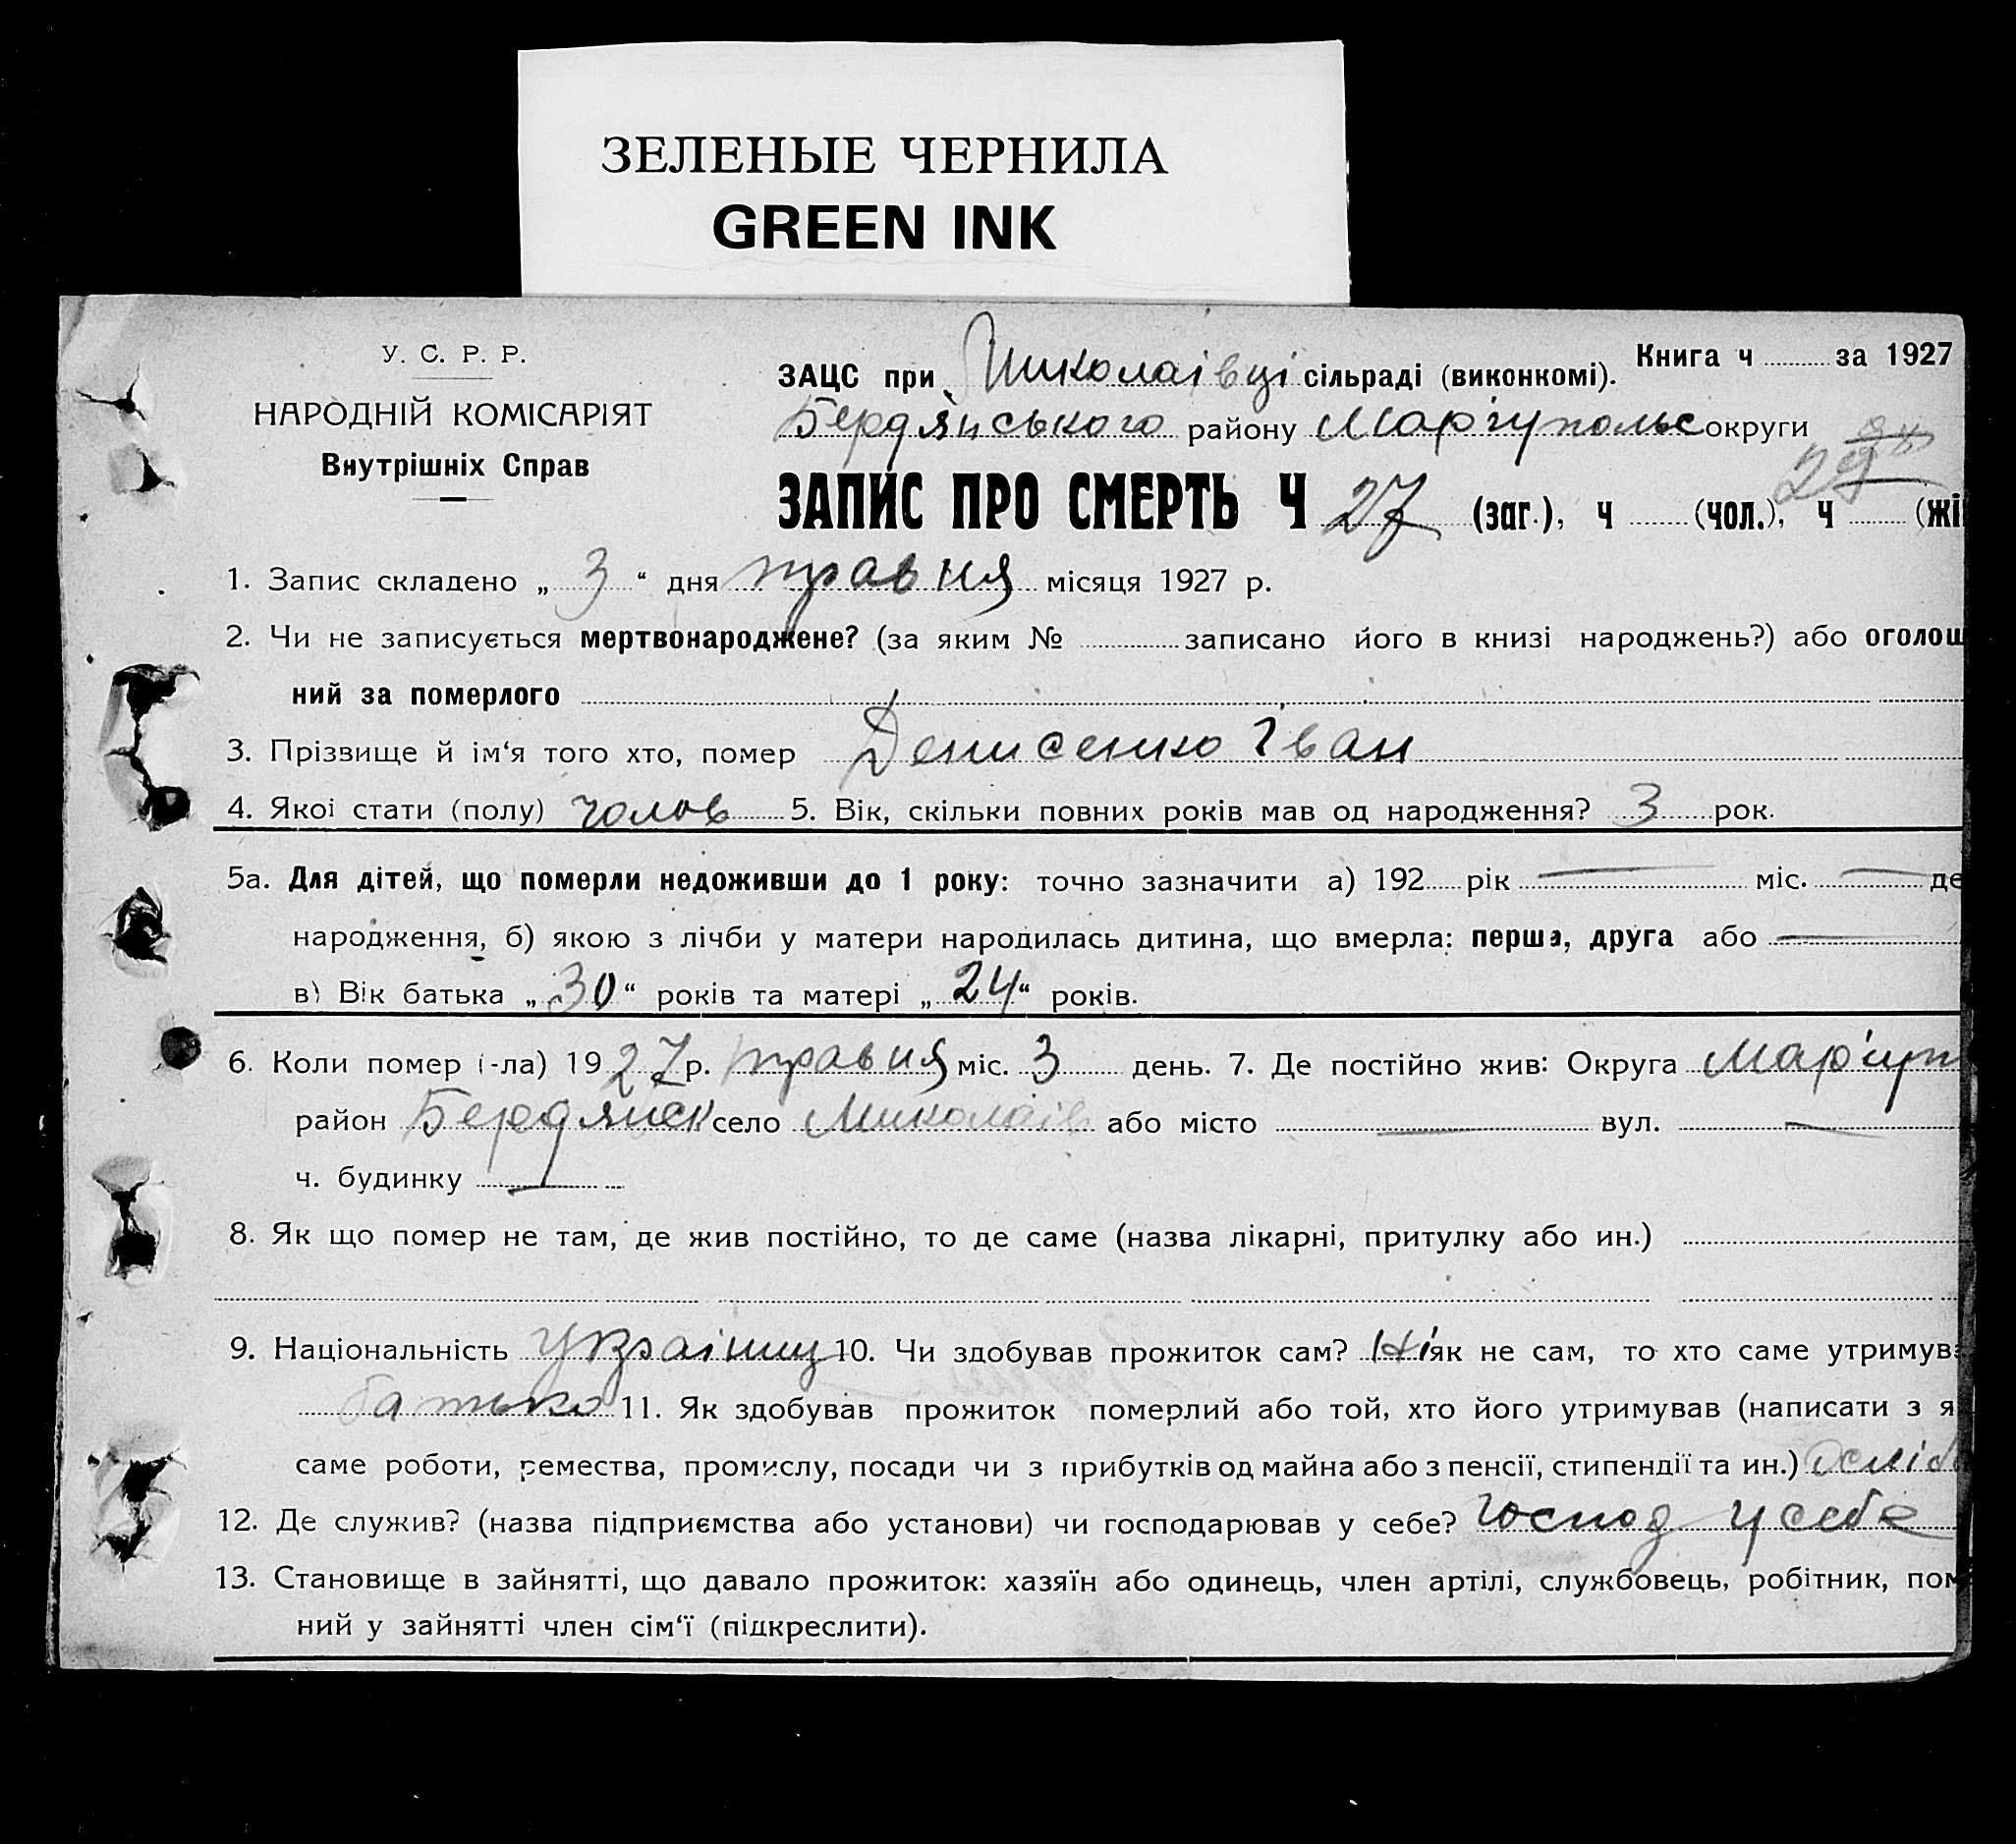 ЗЕЛЕНЫЕ ЧЕРНИЛА
GREEN INK
У. С. Р. Р.
НАРОДНІЙ КОМІСАРІЯТ
Внутрішніх Справ
Книга ч за 1927
ЗАЦС при Миколаівці сільраді (виконкомі).
Бердянського району Маріупольс округи
ЗАПИС ПРО СМЕРТЬ Ч 27 (заг.), ч (чол.), ч (жі
29
1. Запис складено „3“ дня травня місяця 1927 р.
2. Чи не записується мертвонароджене? (за яким № записано його в книзі народжень?) або оголош
ний за померлого
3. Прізвище й ім‘я того хто, помер Денисенко Іван
4. Якоі стати (полу) чолов 5. Вік, скільки повних років мав од народження? 3 рок.
5а. Для дітей, що померли недоживши до 1 року: точно зазначити а) 192 рік — міс. — де
народження, б) якою з лічби у матери народилась дитина, що вмерла: перша, друга або —
в) Вік батька „30“ років та матері „24“ років.
6. Коли помер (-ла) 1927 р. травня міс. 3 день. 7. Де постійно жив: Округа Маріуп
район Бердянск село Миколаів або місто — вул. —
ч. будинку —
8. Як що помер не там, де жив постійно, то де саме (назва лікарні, притулку або ин.)
9. Національність Українц 10. Чи здобував прожиток сам? Ні як не сам, то хто саме утримув
батько 11. Як здобував прожиток померлий або той, хто його утримував (написати з я
саме роботи, ремества, промислу, посади чи з прибутків од майна або з пенсії, стипендії та ин.)
12. Де служив? (назва підприємства або установи) чи господарював у себе? Господ у себе
13. Становище в зайнятті, що давало прожиток: хазяїн або одинець, член артілі, службовець, робітник, пом
ний у зайнятті член сім‘ї (підкреслити).